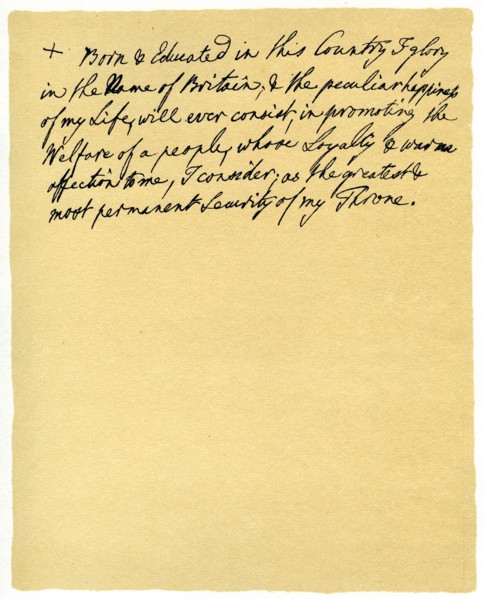 + Born & Educated in this Country I glory
in the Name of Britain; & the peculiar happiness
of my Life, will ever consist, in promoting the
Welfare of a people, whose Loyalty & warm
affection to me, I consider; as the greatest &
most permanent Security of my Throne.